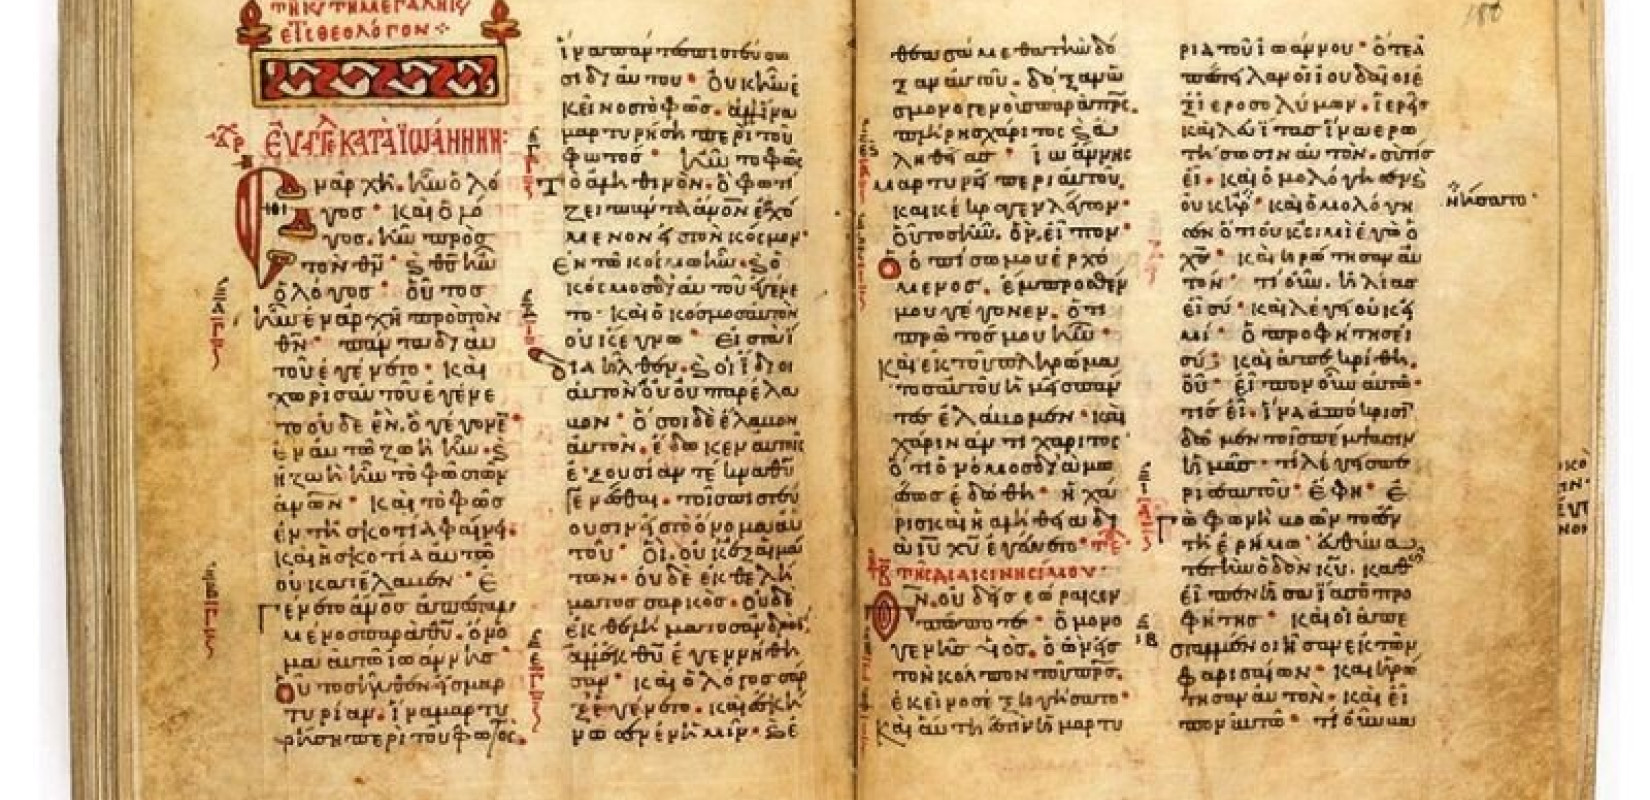 ΕΥΑΓΓΕ ΚΑΤΑ ΪΩΑΝΝΗΝ:
Ἐν ἀρχῆ. ἦν ὁ λό
γος · καὶ ὁ λό
γος. ἦν πρὸς
τὸν θν · ϗ θς ἦν
ὁ λόγος · οὗτος
ἦν ἐν ἀρχῆ πρὸς τὸν
θν · πάντα δι αὐ
τοῦ ἐγένετο · καὶ
χωρὶς αὐτοῦ ἐγένε
το οὐδὲ ἕν. ὃ γέγονεν
ἐν αὐτῶ ζωὴ ἦν. ϗ
ἡ ζωὴ ἦν τὸ φῶς τῶν
ἀνων · καὶ τὸ φῶς
ἐν τῆ σκοτία φαίνει.
καὶ ἡ σκοτία αὐτὸ
οὐ κατέλαβεν · ἐ
γένετο ἄνος ἀπεσταλ
μένος παρὰ θυ. ὄνο
μα αὐτῶ ἰωάννης
Οὗτος ἦλθεν εἰς μαρ
τυρίαν. ἵνα μαρτυ
ρήση περὶ τοῦ φωτός.
ἵνα πάντες πιστεύσω
σι δι αὐτοῦ · οὐκ ἦν ἐ
κεῖνος τὸ φῶς. ἀλλ ἵνα
μαρτυρήση περὶ τοῦ
φωτός · ἦν τὸ φῶς
τὸ ἀληθινόν. ὃ φωτί
ζει πάντα ἄνον ἐρχό
μενον εἰς τὸν κόσμον ·
Ἐν τῶ κόσμω ἦν. ϗ ὁ
κόσμος δι αὐτοῦ ἐγένε
το · καὶ ὁ κόσμος αὐτὸν
οὐκ ἔγνω · εἰς τὰ ἴ
δια ἦλθεν. ϗ οἱ ἴδιοι
αὐτὸν οὐ παρέλα
βον · ὅσοι δὲ ἔλαβον
αὐτὸν. ἔδωκεν αὐτοῖς
ἐξουσίαν τέκνα θυ
γενέσθαι. τοῖς πιστεύ
ουσιν εἰς τὸ ὄνομα αὐ
τοῦ · οἳ οὐκ ἐξ αἱμά
των. οὐδὲ ἐκ θελή
ματος σαρκὸς. οὐδὲ
ἐκ θελήματος ἀνδρός.
ἀλλ ἐκ θυ ἐγεννήθη
σαν · καὶ ὁ λόγος σὰρ
ξ ἐγένετο. καὶ ἐσκή
νωσεν ἐν ἡμῖν. ϗ ἐ
θεασάμεθα τὴν δό
ξαν αὐτοῦ. δόξαν ὡ
ς μονογενοῦς παρὰ πρς.
πλήρης χάριτος ϗ ἀ
ληθείας · ἰωάννης
μαρτυρεῖ περὶ αὐτοῦ.
καὶ κέκραγεν λέγων ·
οὗτος ἦν. ὃν εἶπον ·
Ὁ ὀπίσω μου ἐρχό
μενος. ἔμπροσθέν
μου γέγονεν. ὅτι
πρῶτός μου ἦν ·
Καὶ ἐκ τοῦ πληρώμα
τος αὐτοῦ ἡμεῖς πάν
τες ἐλάβομεν · καὶ
χάριν ἀντὶ χάριτος ·
ὅτι ὁ νόμος διὰ μω
σέως ἐδόθη · ἡ χά
ρις καὶ ἡ ἀλήθεια δι
ὰ ιυ χυ ἐγένετο ·
ΤΗΣ ΔΙΑΚΙΝΗΣΙΜΟΥ ·
Θν. οὐδεὶς ἑώρακεν
πώποτε · ὁ μονο
γενὴς υἱὸς. ὁ ὢν εἰς
τὸν κόλπον τοῦ πρς.
ἐκεῖνος ἐξηγήσατο ·
Καὶ αὕτη ἐστὶν ἡ μαρτυ
ρία τοῦ ἰωάννου · ὅτε ἀ
πέστειλαν οἱ ἰουδαῖοι ἐ
ξ ἱεροσολύμων. ἱερεῖς
καὶ λευίτας ἵνα ἐρω
τήσωσιν αὐτόν. σὺ τίς
εἶ · καὶ ὡμολόγησεν ϗ
οὐκ ἠρ · καὶ ὡμολόγη
σεν ὅτι οὐκ εἰμὶ ἐγὼ ὁ
χς · καὶ ἠρώτησαν αὐ
τόν · τί οὖν. ἠλίας
εἶ σύ · καὶ λέγει οὐκ εἰ
μί · ὁ προφήτης εἶ
σύ; καὶ ἀπεκρίθη.
οὔ · εἶπον οὖν αὐτῶ ·
τίς εἶ · ἵνα ἀπόκρισι
δῶμεν τοῖς πέμψασιν
ἡμᾶς · τί λέγεις πε
ρὶ σεαυτοῦ · ἔφη · ἐ
γὼ φωνὴ βοῶντος ἐν
τῆ ἐρήμω · εὐθύνα
τε τὴν ὁδὸν κυ. καθ
εἶπεν ἡσαΐας ὁ προ
φήτης · καὶ οἱ ἀπε
σταλμένοι ἦσαν ἐκ τῶν
φαρισαίων · καὶ ἠρώ
τησαν αὐτόν · καὶ εἶ
πον αὐτῶ · τί οὖν βα